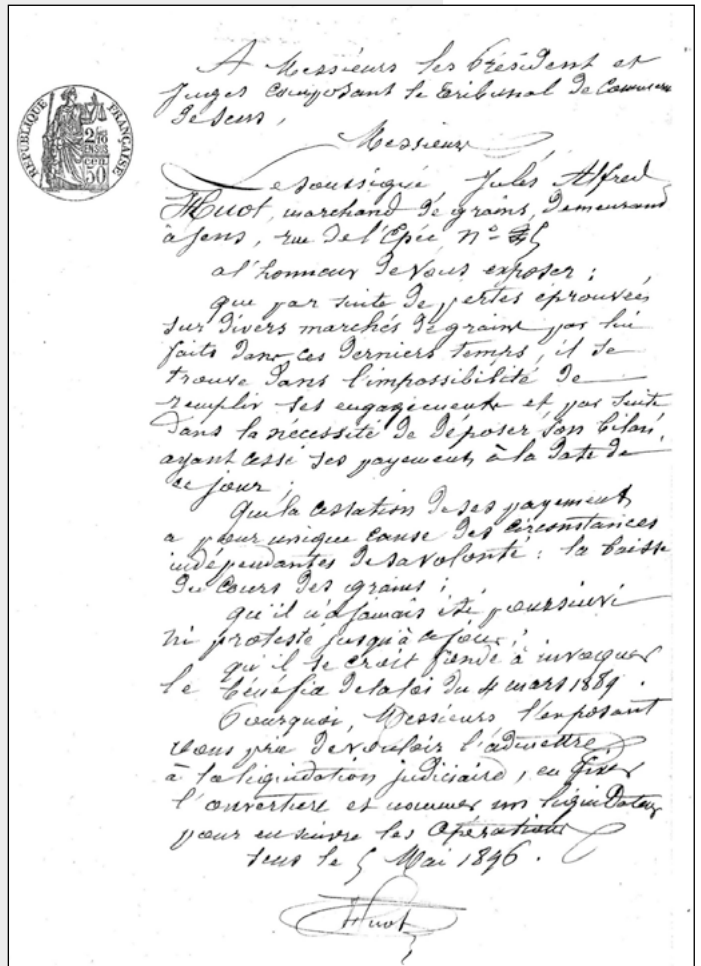 RÉPUBLIQUE FRANÇAISE
2/10 EN SUS
50
A Messieurs les Président et
Juges composant le Tribunal de Commerce
de Sens,
Messieurs
Le soussigné, Jules Alfred
Huot, marchand de grains, demeurant
à Sens, rue de l'Epée, N°
a l'honneur de vous exposer :
que par suite de pertes éprouvées
sur divers marchés de grains par lui
faits dans ces derniers temps, il se
trouve dans l'impossibilité de
remplir ses engagements et par suite
dans la nécessité de déposer son bilan,
ayant cessé ses payements à la date de
ce jour ;
Que la cessation de ses payements
a pour unique cause des circonstances
indépendantes de sa volonté : la baisse
du cours des grains ;
qu'il n'a jamais été poursuivi
ni protesté jusqu'à ce jour ;
qu'il se croit fondé à invoquer
le bénéfice de la loi du 4 mars 1889.
Pourquoi, Messieurs l'exposant
vous prie de vouloir l'admettre
à la liquidation judiciaire, en fixer
l'ouverture et nommer un liquidateur
pour en suivre les opérations
Sens le 5 Mai 1896.
Huot